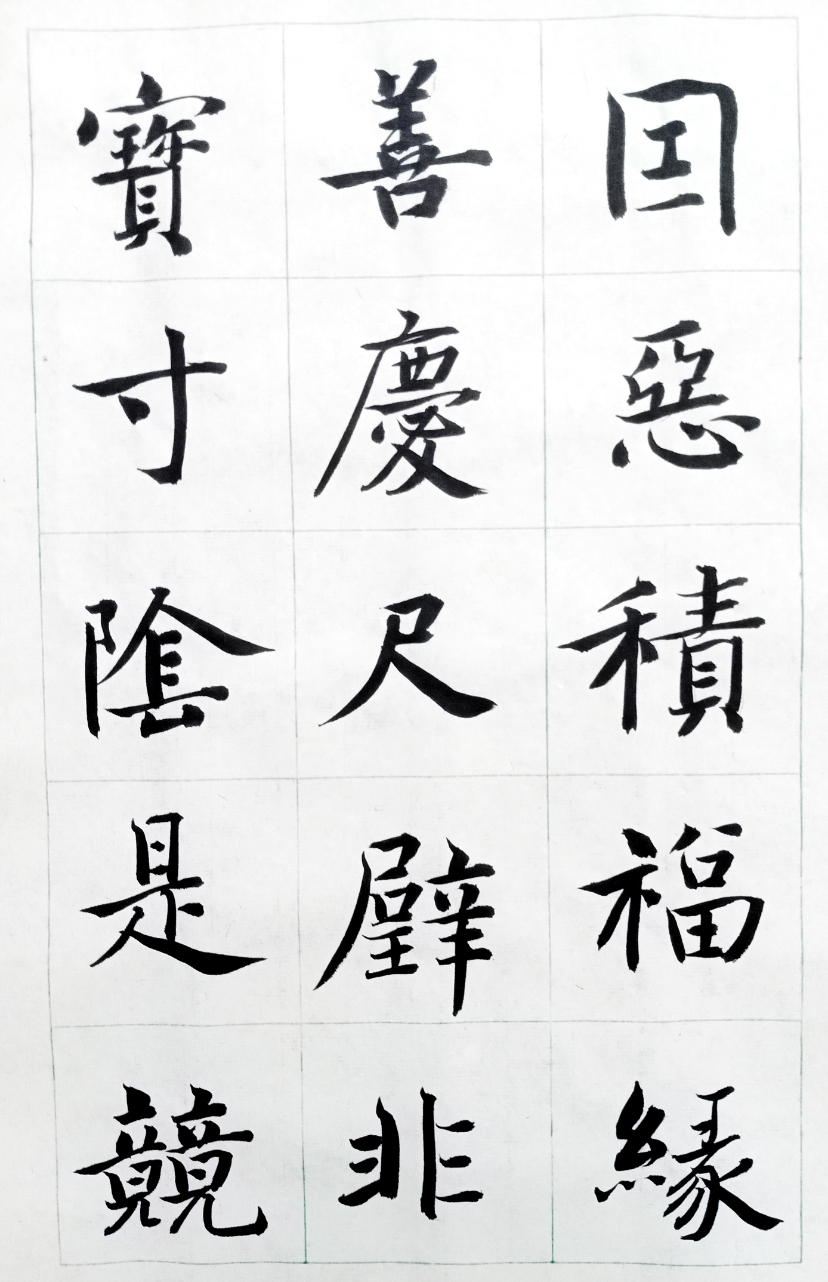 因惡積福緣
善慶尺璧非
寶寸陰是競